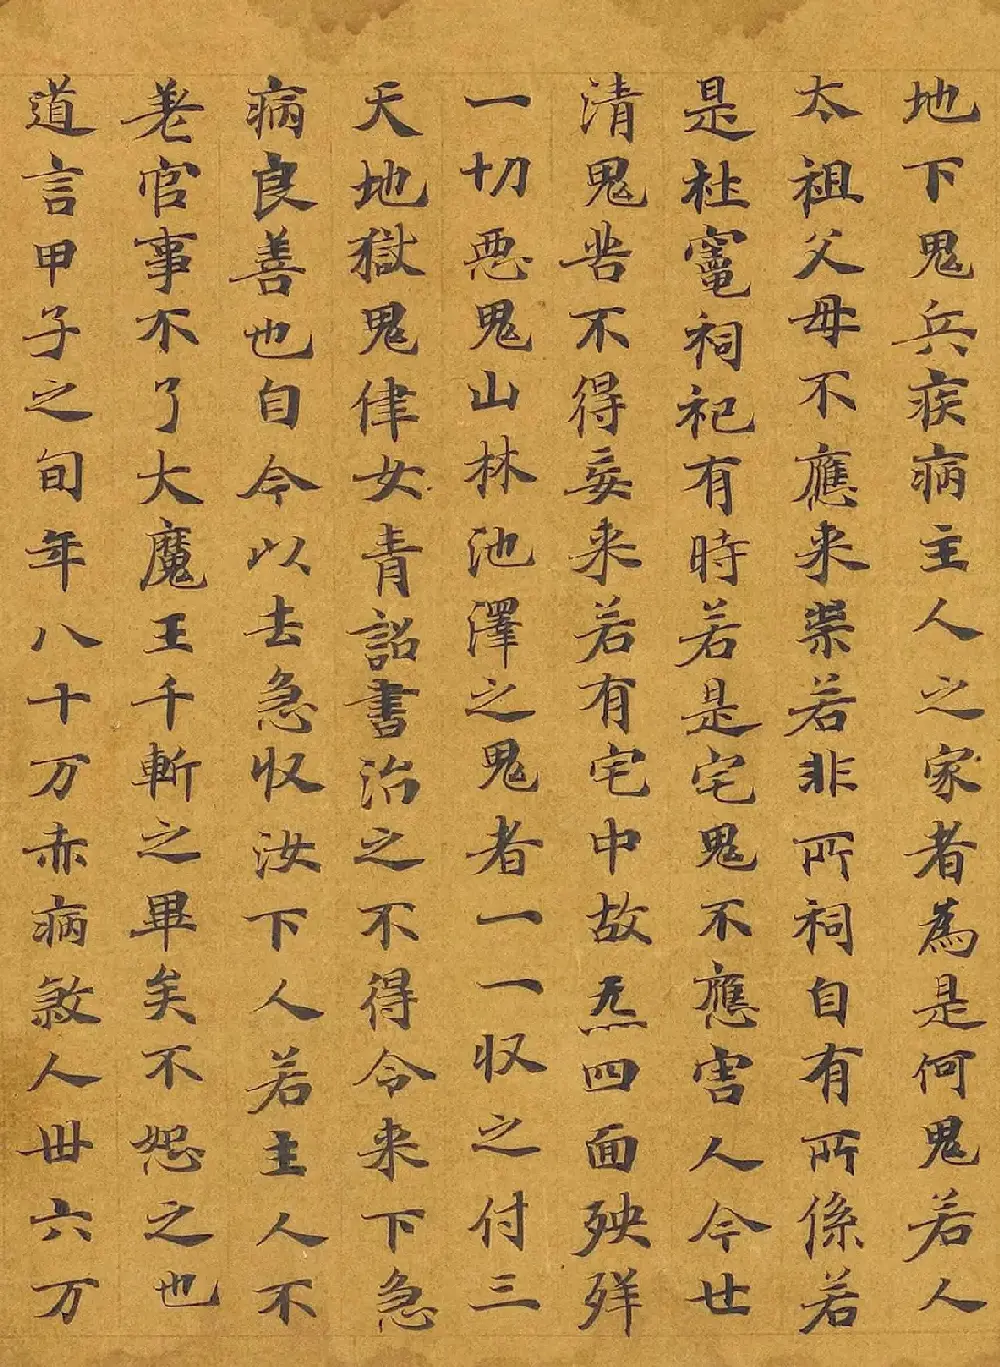 地下鬼兵疾病主人之家者為是何鬼若人
太祖父母不應来祟若非所祠自有所係若
是社竈祠祀有時若是宅鬼不應害人今廿
清鬼呰不得妄来若有宅中故炁四面殃殃
一切惡鬼山林池澤之鬼者一一収之付三
天地獄鬼律女青詔書治之不得令来下急
病良善也自今以去急収汝下人若主人不
差官事不了大魔王千斬之畢矣不恕之也
道言甲子之旬年八十万赤病煞人丗六万